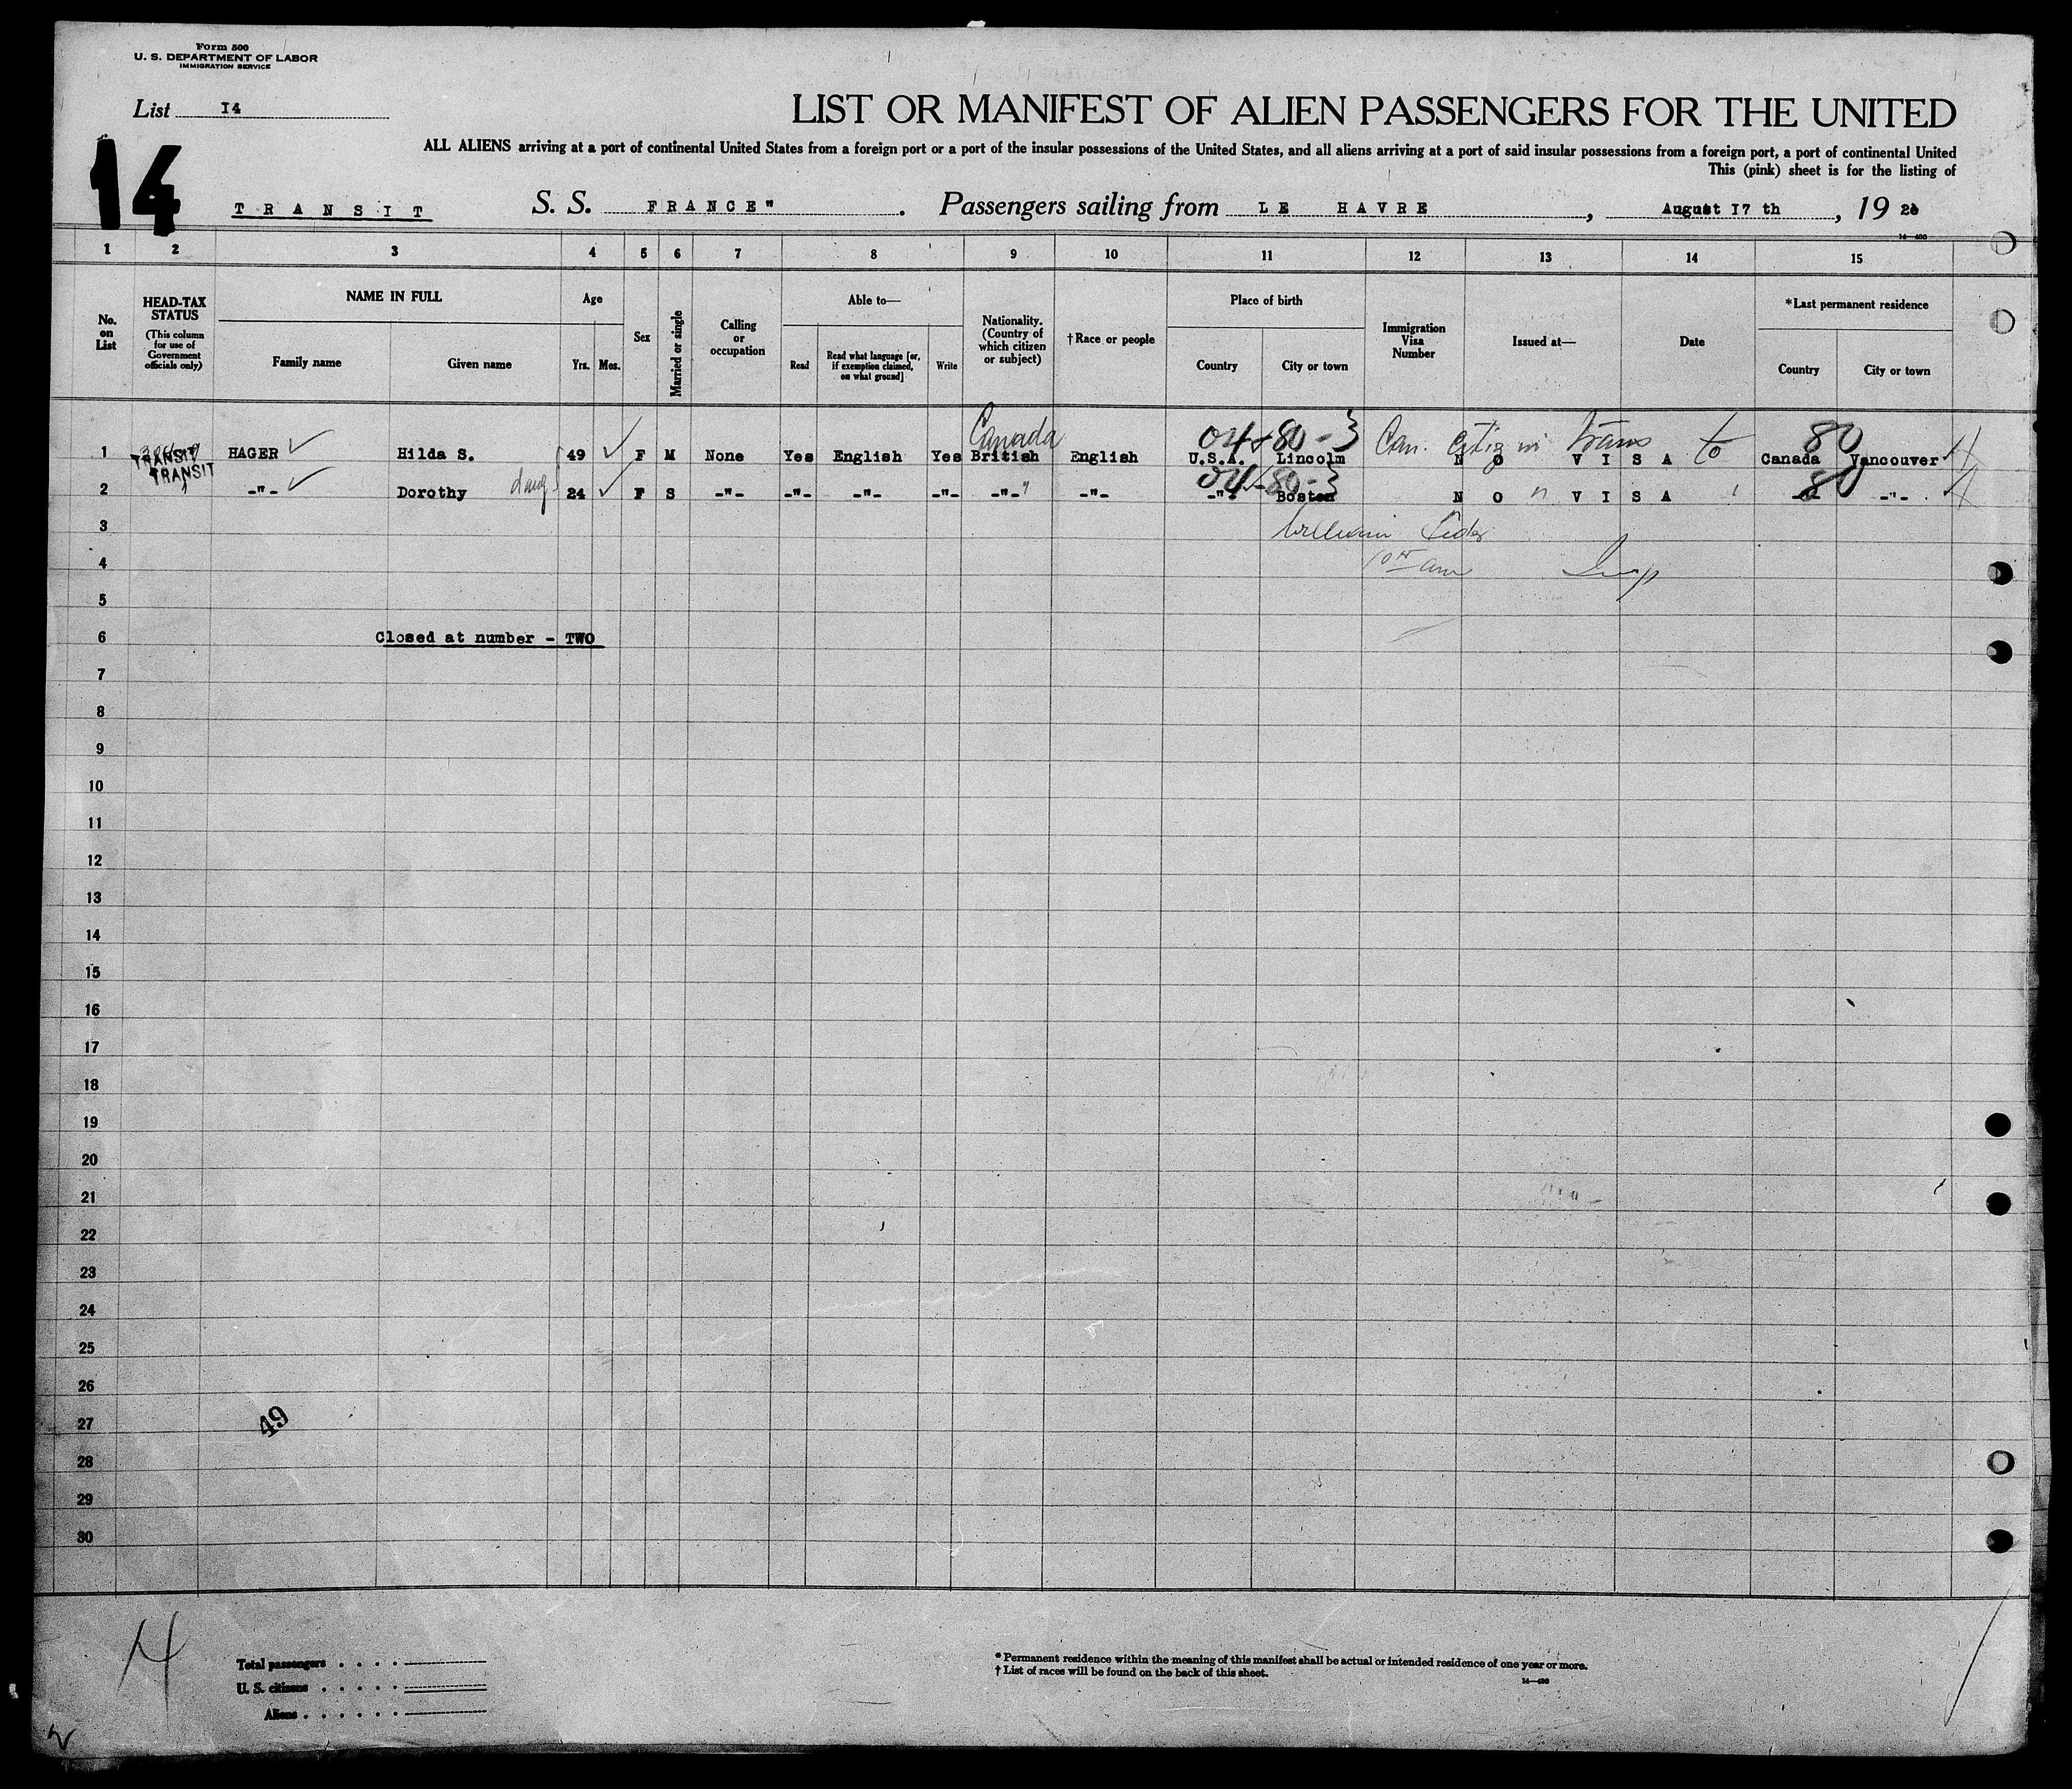 Form 500
U. S. DEPARTMENT OF LABOR
IMMIGRATION SERVICE
List 14
LIST OR MANIFEST OF ALIEN PASSENGERS FOR THE UNITED
ALL ALIENS arriving at a port of continental United States from a foreign port or a port of the insular possessions of the United States, and all aliens arriving at a port of said insular possessions from a foreign port, a port of continental United
This (pink) sheet is for the listing of
14
TRANSIT S. S. FRANCE" . Passengers sailing from LE HAVRE , August 17 th , 19
1 2 3 4 5 6 7 8 9 10 11 12 13 14 15
No. on List
HEAD-TAX STATUS (This column for use of Government officials only)
NAME IN FULL Family name Given name
Age Yrs. Mos.
Sex
Married or single
Calling or occupation
Able to— Read Read what language [or, if exemption claimed, on what ground] Write
Nationality. (Country of which citizen or subject)
†Race or people
Place of birth Country City or town
Immigration Visa Number
Issued at—
Date
*Last permanent residence Country City or town
Canada 04-80-3 Can. in trans to 80
1 TRANSIT HAGER Hilda S. 49 F M None Yes English Yes British English U.S.A. Lincolm NO VISA Canada Vancouver
TRANSIT 80-3 80
2 -"- Dorothy daug 24 F S -"- -"- -"- -"- -"- -"- -"- Boston NO VISA -"-
3 William
4 am Insp
5
6 Closed at number - TWO
7
8
9
10
11
12
13
14
15
16
17
18
19
20
21
22
23
24
25
26
27 49
28
29
30
Total passengers
U. S. citizens
Aliens
* Permanent residence within the meaning of this manifest shall be actual or intended residence of one year or more.
† List of races will be found on the back of this sheet.